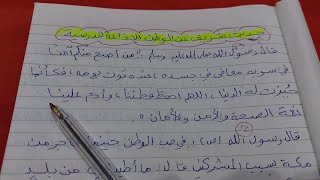 حديث شريف عن الوطن للإذاعة المدرسية
قال رسول الله صلى الله عليه وسلم: "من أصبح منكم آمنا
في سربه معافى في جسده، عنده قوت يومه، فكأنما
حيزت له الدنيا، اللهم احفظ وطننا، وأدم علينا
نعمة الصحة والأمن والأمان".
قال رسول الله (ص)، في حب الوطن حينما خرج من
مكة بسبب المشركين قال: ما أطيبك من بلد